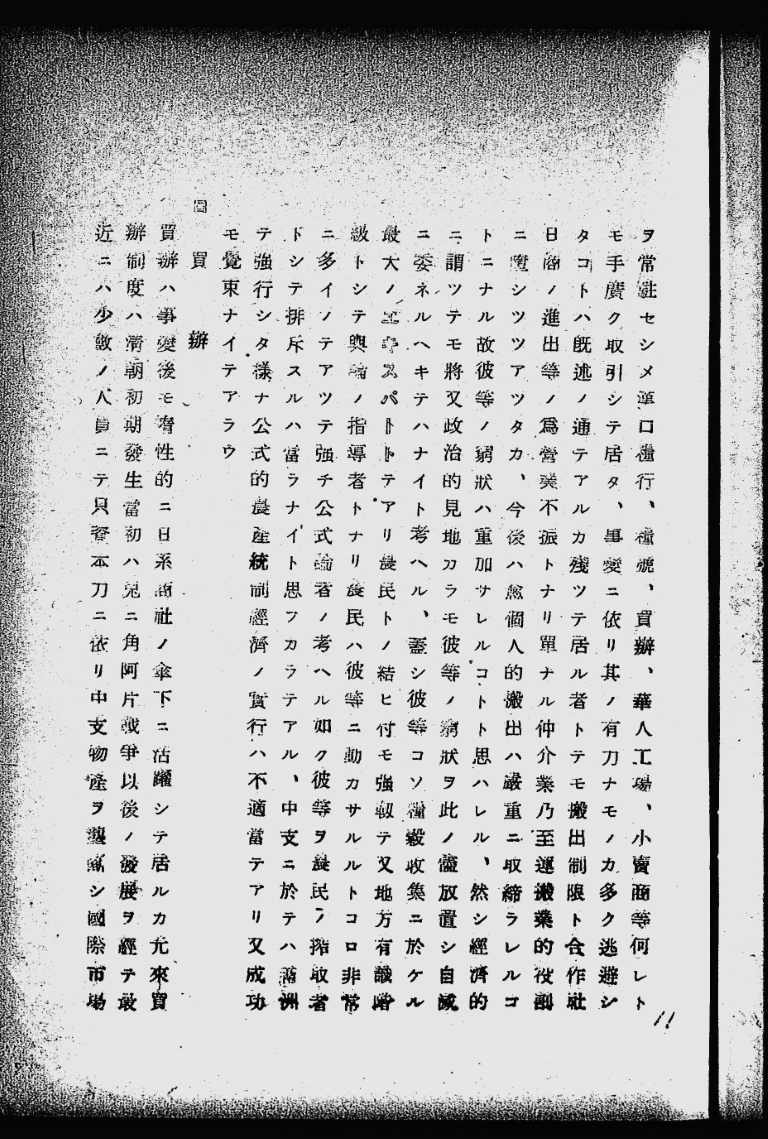 ヲ常駐セシメ準口糧行、糧號、買辦、華人工場、小賣商等何レト
モ手廣ク取引シテ居タ、事變ニ依リ其ノ有力ナモノカ多ク逃避シ
タコトハ既述ノ通テアルカ殘ツテ居ル者トテモ搬出制限ト合作社
日商ノ進出等ノ爲營業不振トナリ單ナル仲介業乃至運搬業的役割
ニ墮シツツアツタカ、今後ハ個人的搬出ハ嚴重ニ取締ラレルコ
トニナル故彼等ノ窮狀ハ重加サレルコトト思ハレル、然シ經濟的
ニ謂ツテモ將又政治的見地カラモ彼等ノ窮狀ヲ此ノ儘放置シ自滅
ニ委ネルヘキテハナイト考ヘル、蓋シ彼等コソ糧穀收集ニ於ケル
最大ノエキスパートテアリ農民トノ結ヒ付モ強靱テ又地方有識階
級トシテ輿論ノ指導者トナリ農民ハ彼等ニ動カサルルトコロ非常
ニ多イノテアツテ强チ公式論者ノ考ヘル如ク彼等ヲ農民ノ搾取者
トシテ排斥スルハ當ラナイト思フカラテアル、中支ニ於テハ滿洲
テ强行シタ樣ナ公式的農產統制經濟ノ實行ハ不適當テアリ又成功
モ覺束ナイテアラウ
買辦
買辦ハ事變後モ惰性的ニ日系商社ノ傘下ニ活躍シテ居ルカ元來買
辦制度ハ淸朝初期發生當初ハ兎ニ角阿片戰爭以後ノ發展ヲ經テ最
近ニハ少數ノ人員ニテ只資本力ニ依リ中支物產ヲ シ國際市場
11